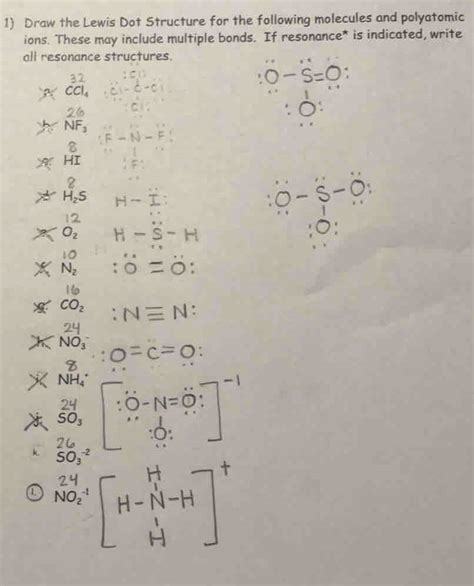 1) Draw the Lewis Dot Structure for the following molecules and polyatomic
ions. These may include multiple bonds. If resonance* is indicated, write
all resonance structures.
32
CCl₄
:Cl:
:Cl-C-Cl:
:Cl:
26
NF₃
:F-N-F:
:F:
8
HI
H-I:
8
H₂S
H-S-H
12
O₂
:O=O:
10
N₂
:N≡N:
16
CO₂
:O=C=O:
24
NO₃⁻
[:O-N=O:]⁻¹
:O:
8
NH₄⁺
H
[H-N-H]⁺
H
24
SO₃
:O-S=O:
:O:
k. 26
SO₃⁻²
:O-S-O:
:O:
l. 24
NO₂⁻¹